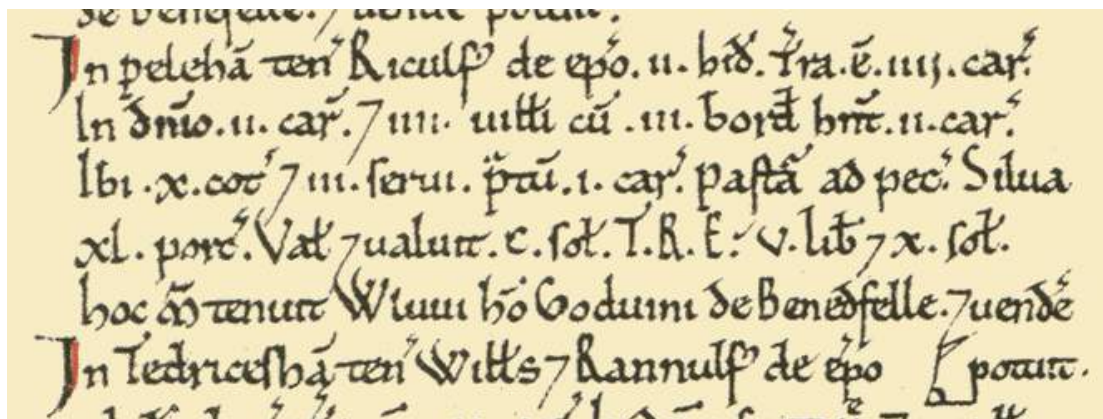 de Benefelle. ⁊ uende potuit.
In peleha̅ ten̛ Riculf᷒ de ep̅o. ii. hid̛. T̛ra. e̅. iiij. car̛.
In d̅nio. ii. car̛. ⁊ iiii. uill̵i cu̅ .iii. bord̵ hn̅t. ii. car̛.
Ibi .x. cot̛ ⁊ iii. serui. p̛tu̅. i. car̛. Pasta̅ ad pec̛. Silua
xl. porc̛. Val̵ ⁊ ualuit. c. sol̵. T.R.E.' v. lib̵ ⁊ x. sol̵.
hoc M̅ tenuit Wluui ho̅ Goduini de Benedfelle. ⁊ uende̛
In Tedricesha̅ ten̛ Will̵s ⁊ Rannulf᷒ de ep̅o potuit.